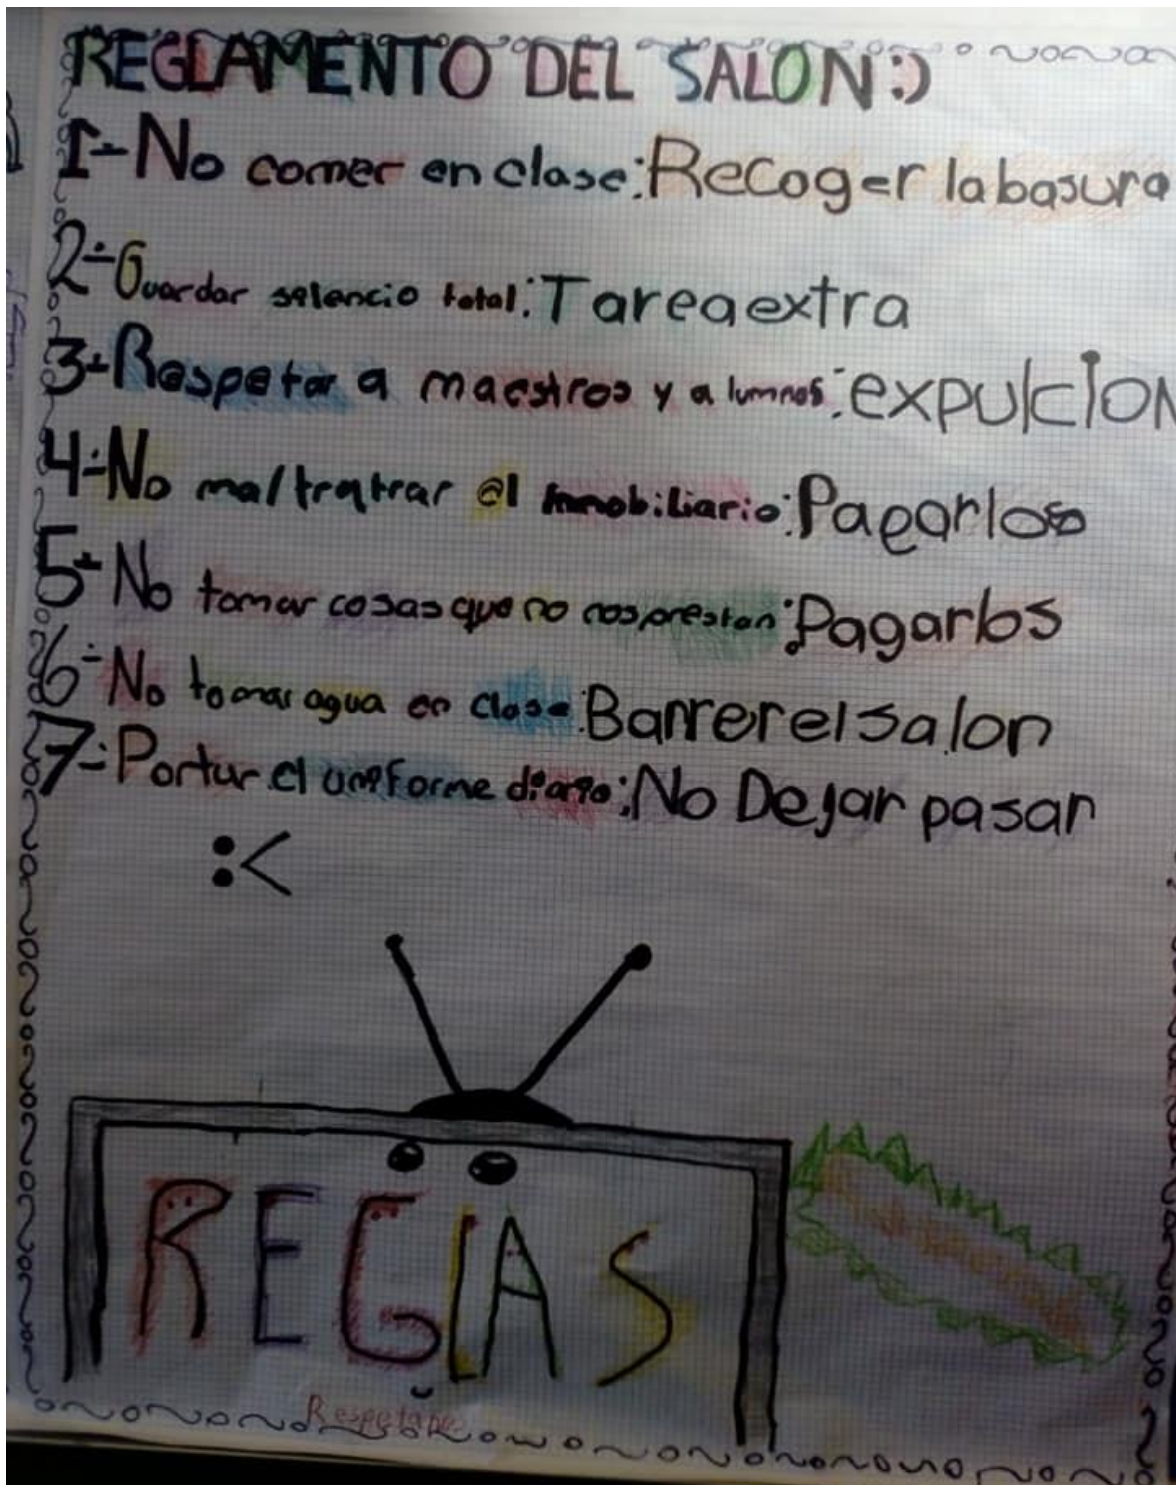 REGLAMENTO DEL SALON:)
1-No comer en clase:Recoger la basura
2-Guardar selencio total:Tarea extra
3-Respetar a maestros y alumnos:expulcion
4-No maltratrar el inmobiliario:Pagarlos
5-No tomar cosas que no nos prestan:Pagarlos
6-No tomar agua en clase:Barrer el salon
7-Portar el uniforme diario:No Dejar pasar
:<
REGLAS